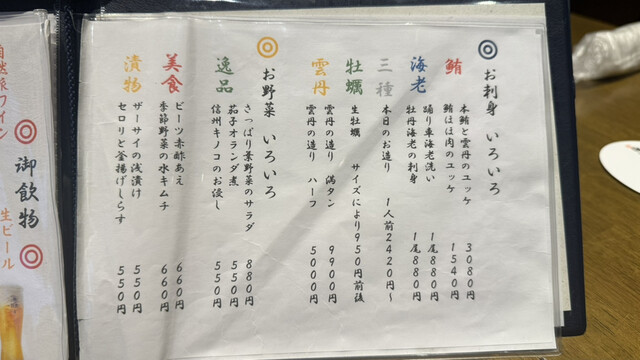 お刺身 いろいろ
鮪
本鮪と雲丹のユッケ 3080円
鮪ほほ肉のユッケ 1540円
海老
踊り車海老洗い 1尾880円
牡丹海老の刺身 1尾880円
三種
本日のお造り 1人前2420円〜
牡蠣
生牡蠣 サイズにより950円前後
雲丹
雲丹の造り 満タン 9900円
雲丹の造り ハーフ 5000円
お野菜 いろいろ
さっぱり葉野菜のサラダ 880円
逸品
茄子オランダ煮 550円
信州キノコのお浸し 550円
美食
ビーツ赤酢あえ 660円
季節野菜の水キムチ 660円
漬物
ザーサイの浅漬け 550円
セロリと釜揚げしらす 550円
自然派ワイン
御飲物
生ビール